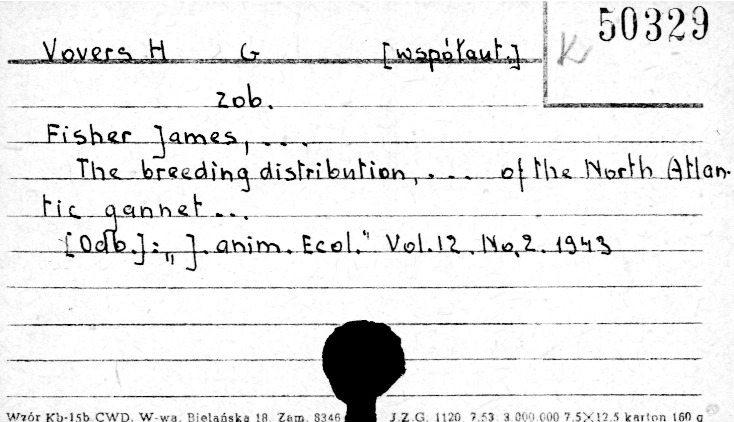 50329
K
Vovers H G [współaut.]
zob.
Fisher James, ...
The breeding distribution, ... of the North Atlan-
tic gannet...
[Odb.]: „J. anim. Ecol." Vol.12. No.2. 1943
Wzór Kb-15b CWD. W-wa, Bielańska 18. Zam. 8346 J.Z.G. 1120 7.53. 3.000.000 7.5×12.5 karton 160 g